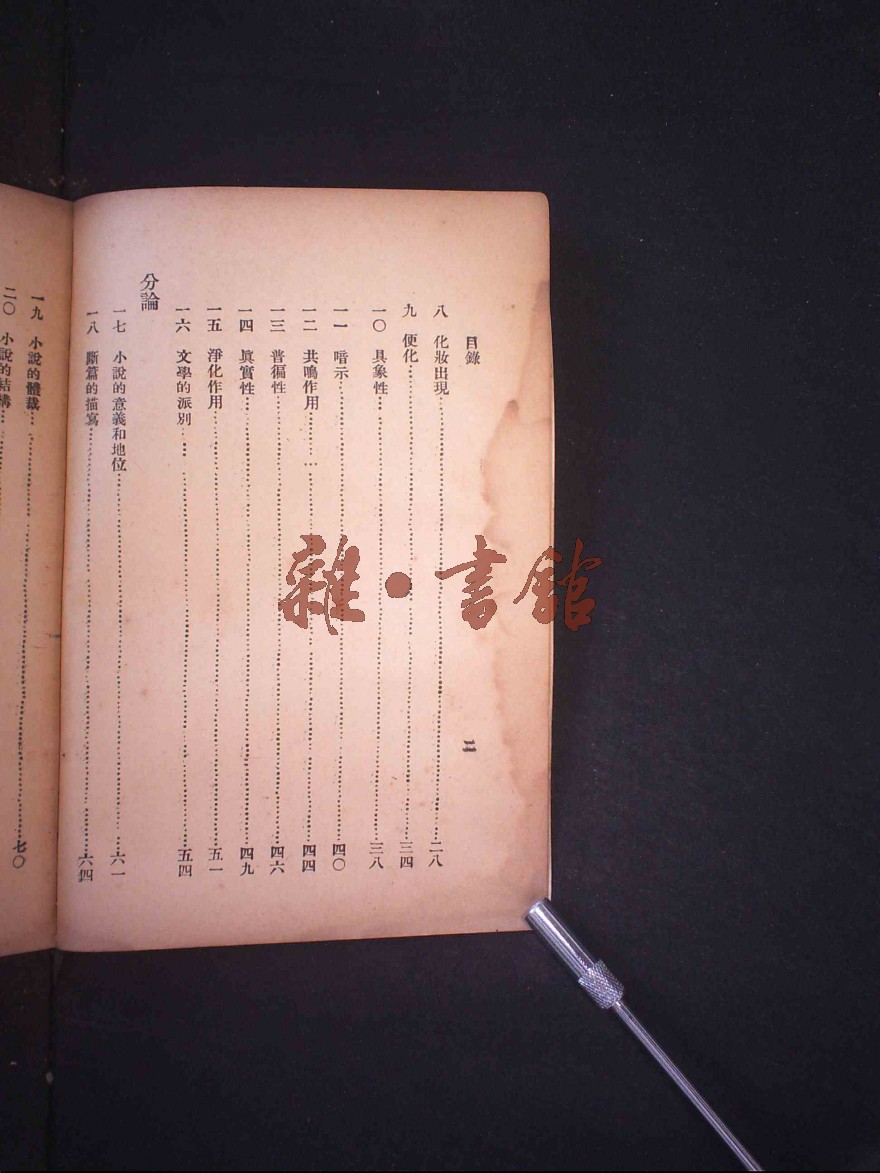 目錄
二
八 化妝出現 二八
九 便化 三四
一〇 具象性 三八
一一 暗示 四〇
一二 共鳴作用 四四
一三 普徧性 四六
一四 眞實性 四九
一五 淨化作用 五一
一六 文學的派別 五四
分論
一七 小說的意義和地位 六一
一八 斷篇的描寫 六四
一九 小說的體裁 七〇
二〇 小說的結構
雜·書館